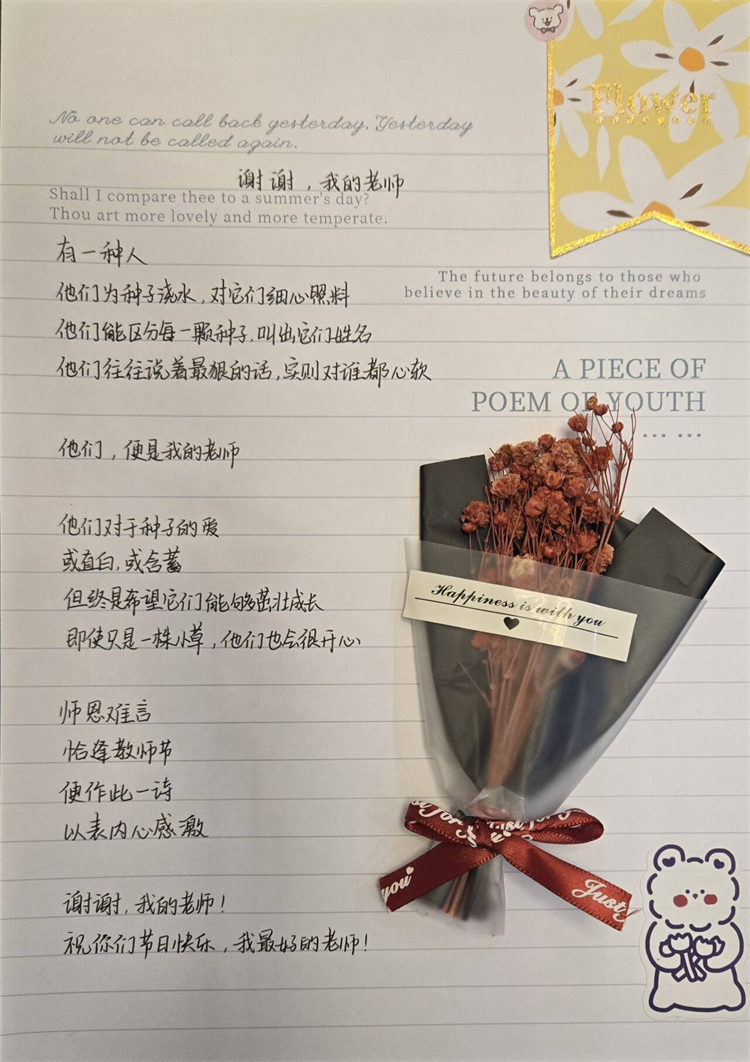 Flower
No one can call back yesterday. Yesterday
will not be called again.
谢谢，我的老师
Shall I compare thee to a summer's day?
Thou art more lovely and more temperate.
有一种人
The future belongs to those who
believe in the beauty of their dreams
他们为种子浇水，对它们细心照料
他们能区分每一颗种子，叫出它们姓名
他们往往说着最狠的话，实则对谁都心软
A PIECE OF
POEM OF YOUTH
... ...
他们，便是我的老师
他们对于种子的爱
或直白，或含蓄
但终是希望它们能够茁壮成长
即使只是一株小草，他们也会很开心
Happiness is with you
师恩难言
恰逢教师节
便作此一诗
以表内心感激
you
Just
谢谢，我的老师！
祝你们节日快乐，我最好的老师！